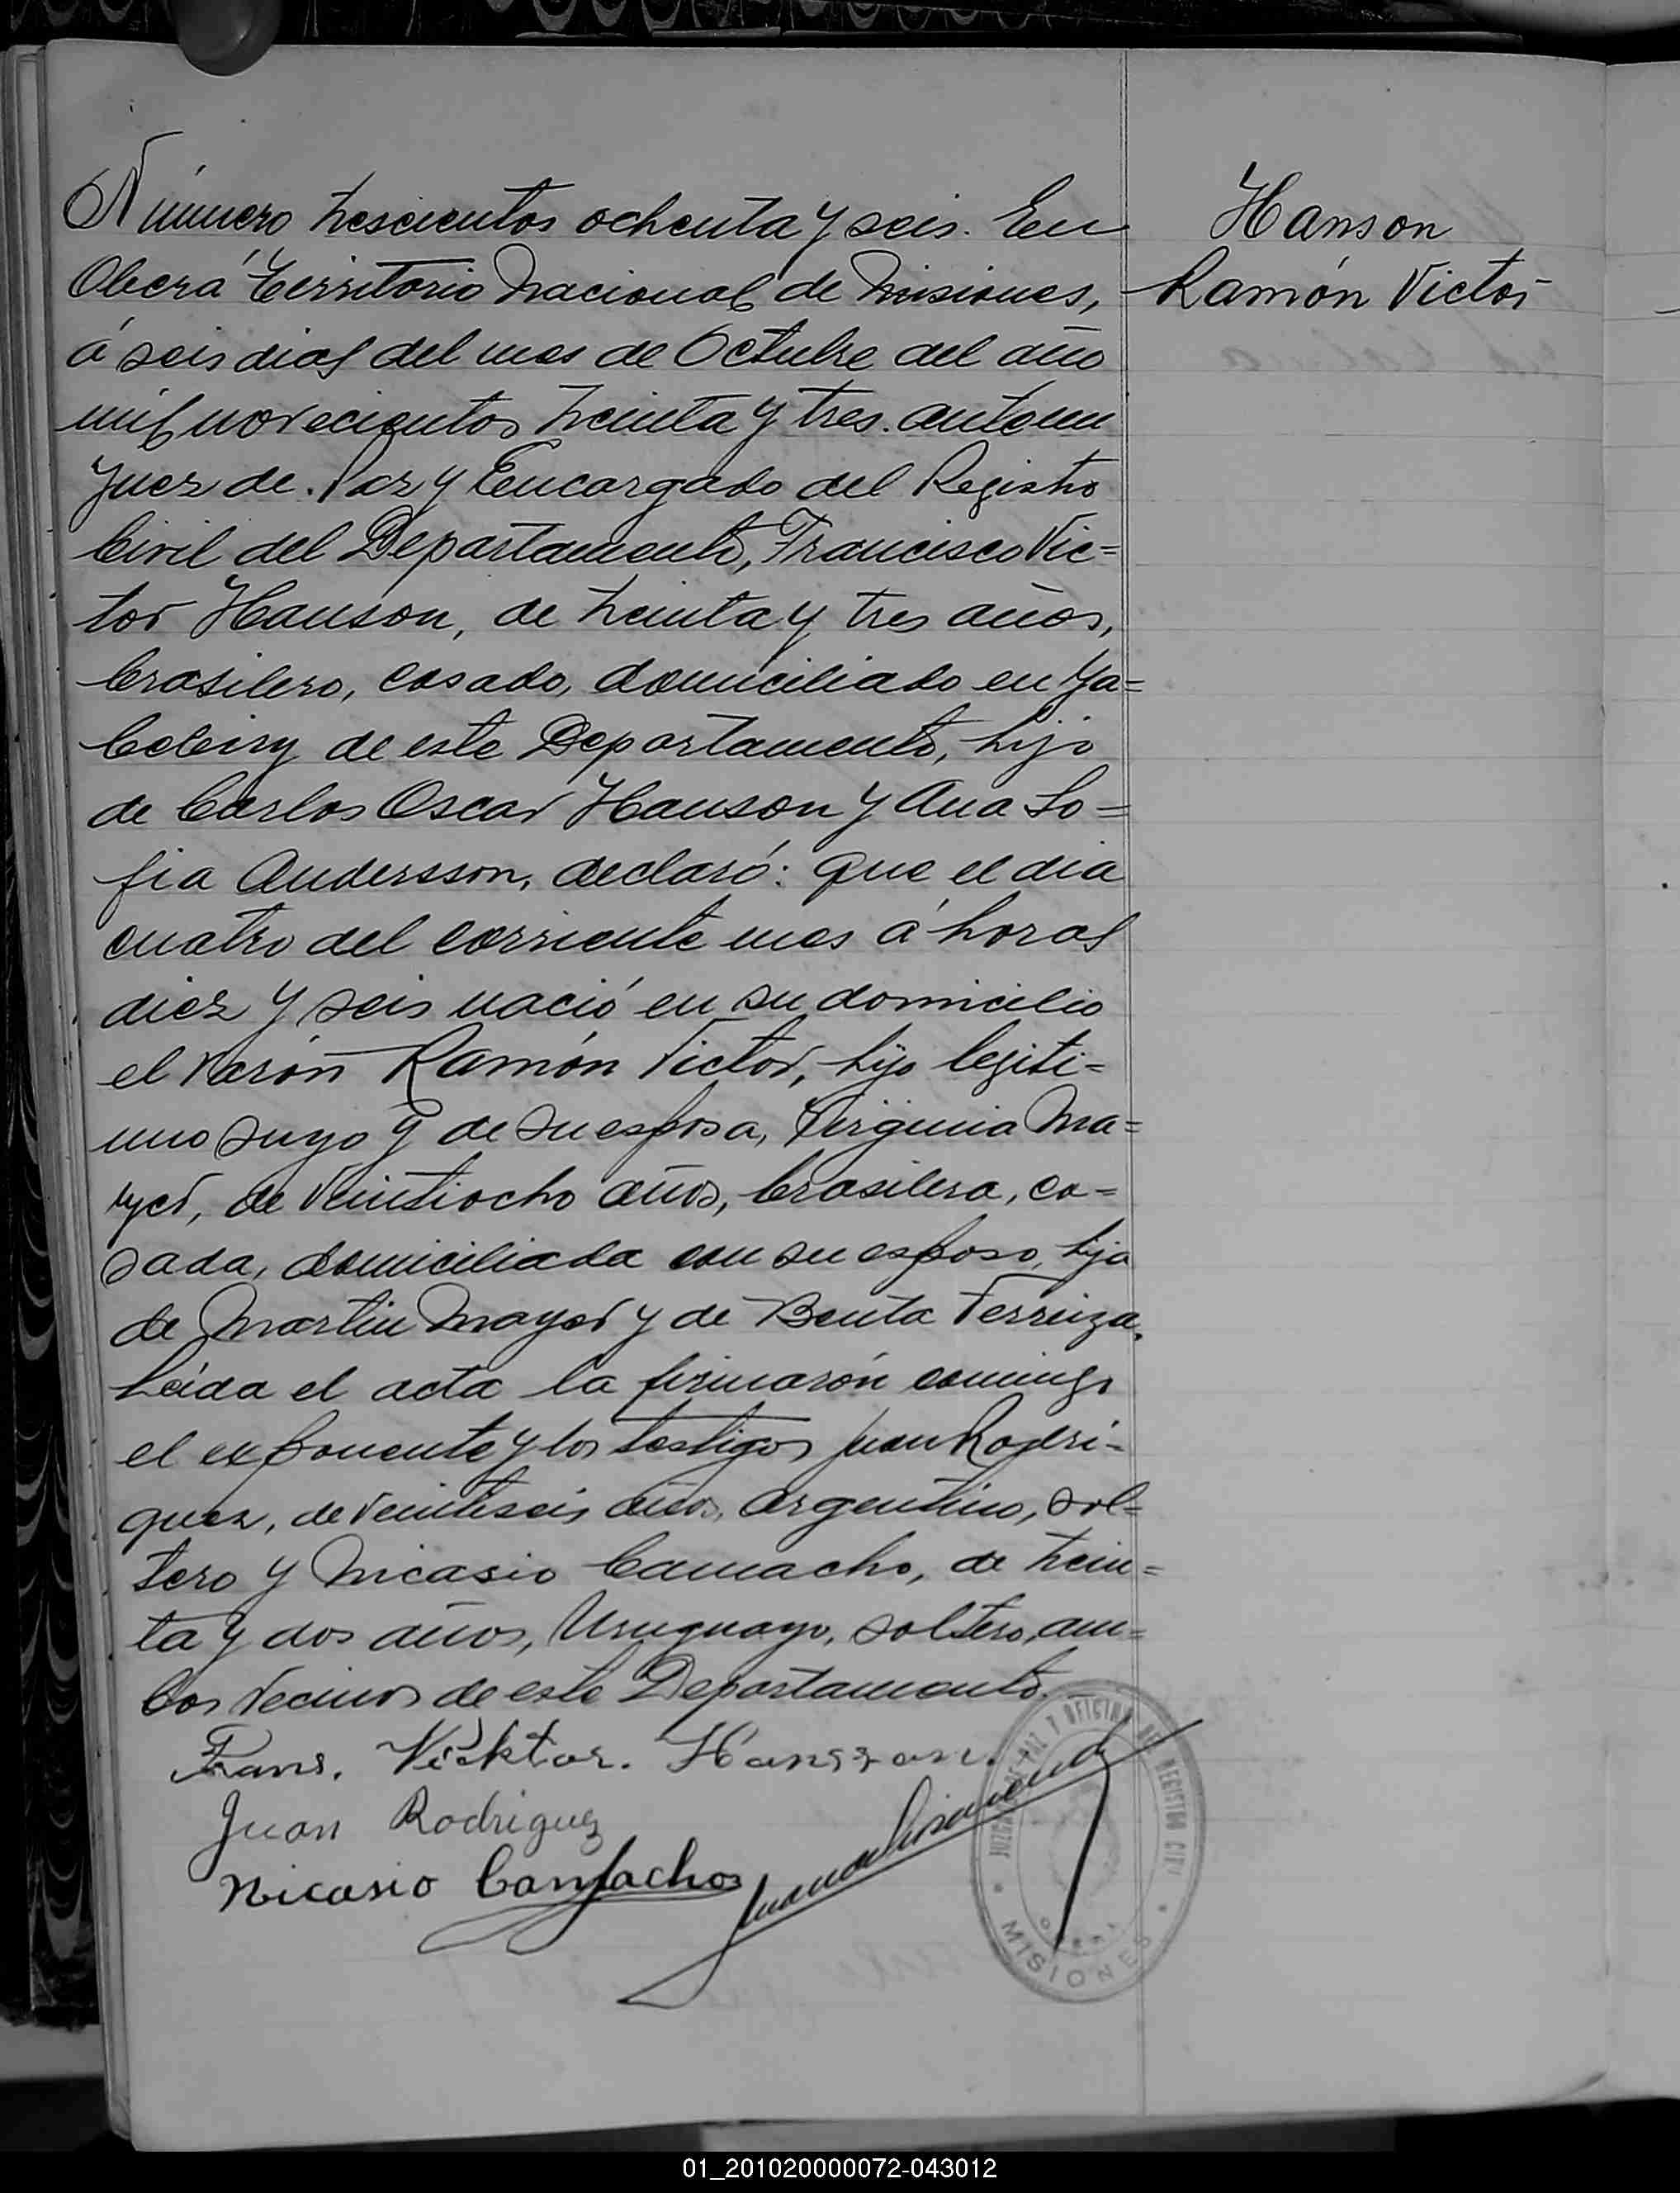 Número trescientos ochenta y seis. En
Oberá Territorio Nacional de Misiones,
á seis dias del mes de Octubre del año
mil novecientos treinta y tres. ante mi
Juez de Paz y Encargado del Registro
Civil del Departamento, Francisco Vic=
tor Hanson, de treinta y tres años,
brasilero, casado, domiciliado en Ya=
bebiry de este Departamento, hijo
de Carlos Oscar Hanson y Ana So=
fia Andersson, declaró: que el dia
cuatro del corriente mes á horas
diez y seis nació en su domicilio
el varón Ramón Victor, hijo legiti=
mo suyo y de su esposa, Virginia Ma=
yer, de veintiocho años, brasilera, ca=
sada, domiciliada con su esposo, hija
de Martin Mayer y de Benta Ferruza.
Leida el acta la firmarón conmigo
el exponente y los testigos Juan Rodri-
guez, de veintiseis años, argentino, sol=
tero y Nicasio Camacho, de trein=
ta y dos años, Uruguayo, soltero, am=
bos vecinos de este Departamento.
Frans. Vicktor. Hansson.
Juan Rodriguez
Nicasio Camacho
Hanson
Ramón Victor
JUZGADO DE PAZ Y OFICINA DEL REGISTRO CIVIL
OBERA
MISIONES
01_201020000072-043012